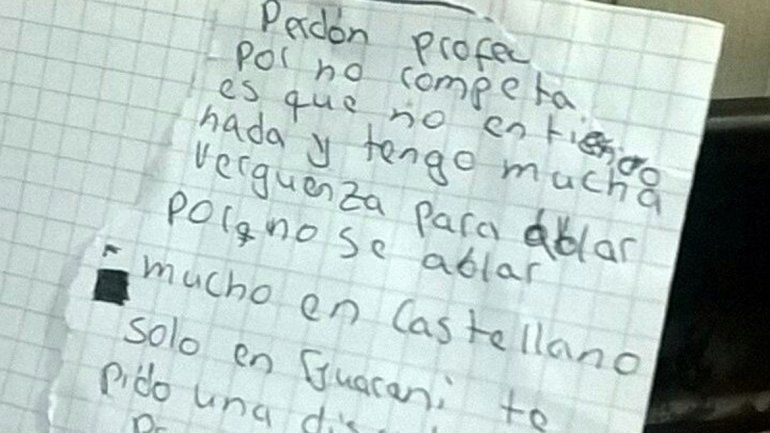 Perdón profe
por no competa
es que no entiendo
nada y tengo mucha
verguenza para ablar
porq no se ablar
mucho en Castellano
solo en Guarani te
pido una